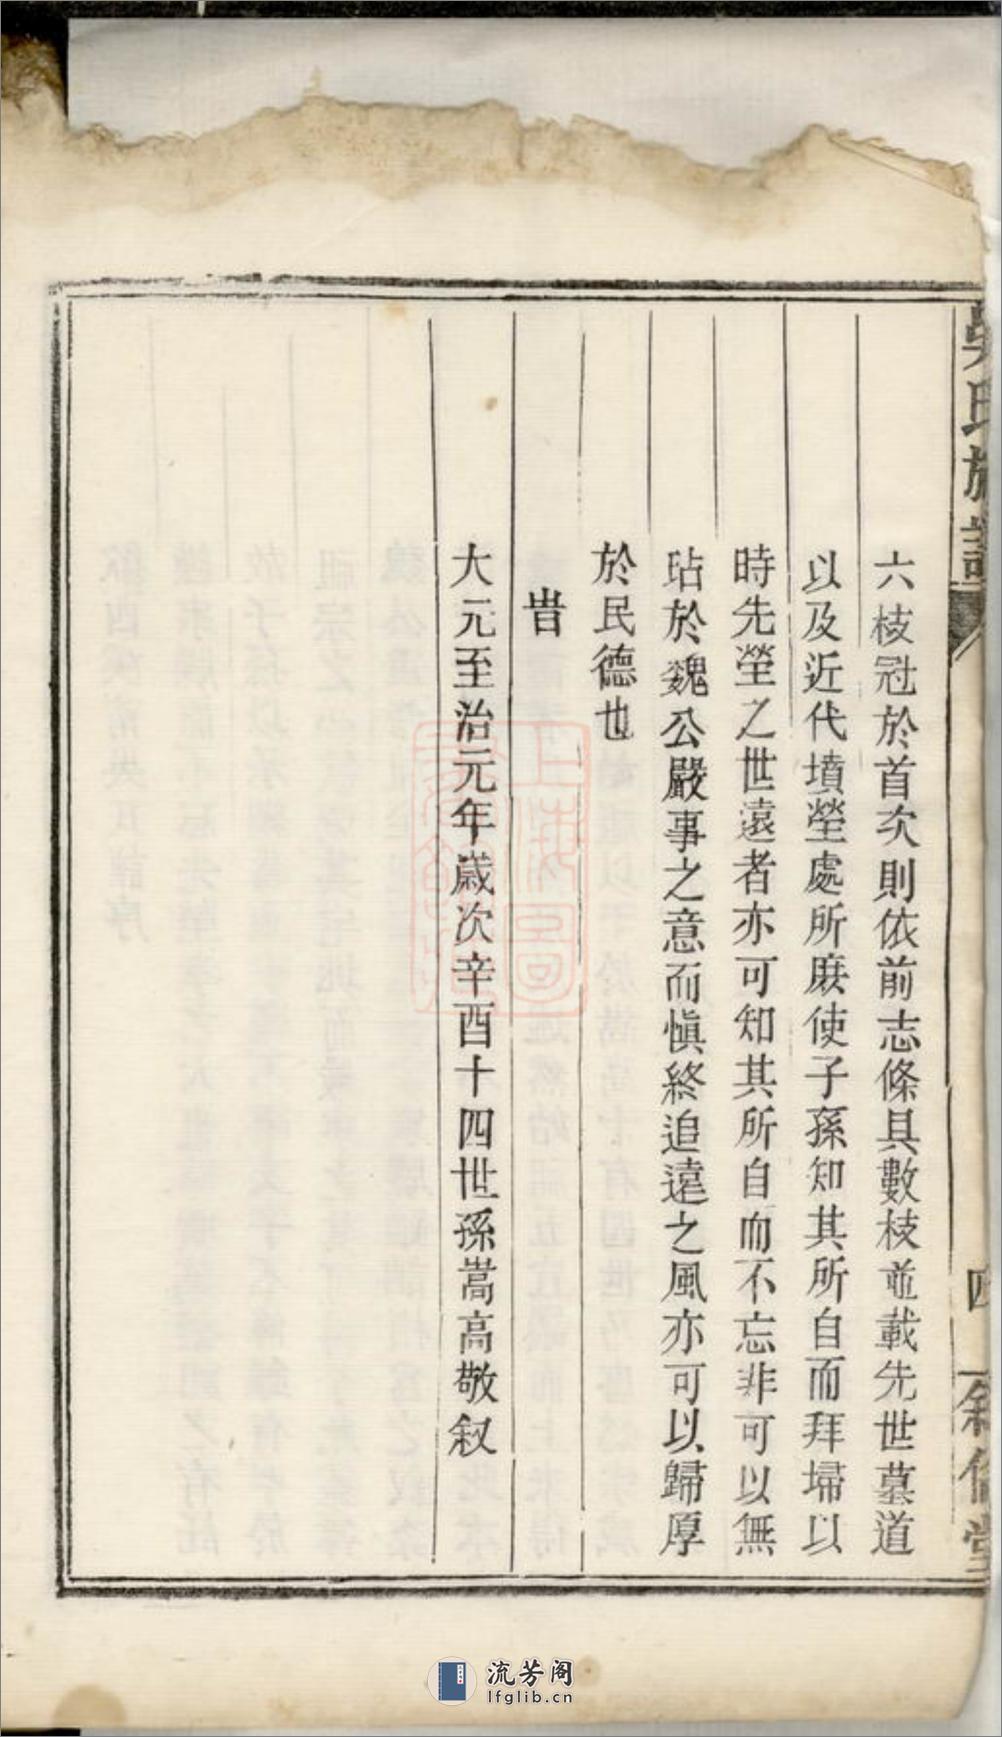 吳氏族譜
四
敘倫堂
六枝冠於首次則依前志條具數枝並載先世墓道
以及近代墳塋處所庶使子孫知其所自而拜埽以
時先塋之世遠者亦可知其所自而不忘非可以無
玷於魏公嚴事之意而慎終追遠之風亦可以歸厚
於民德也
旹
大元至治元年歲次辛酉十四世孫嵩高敬叙
上海圖書館藏
流芳阁
lfglib.cn